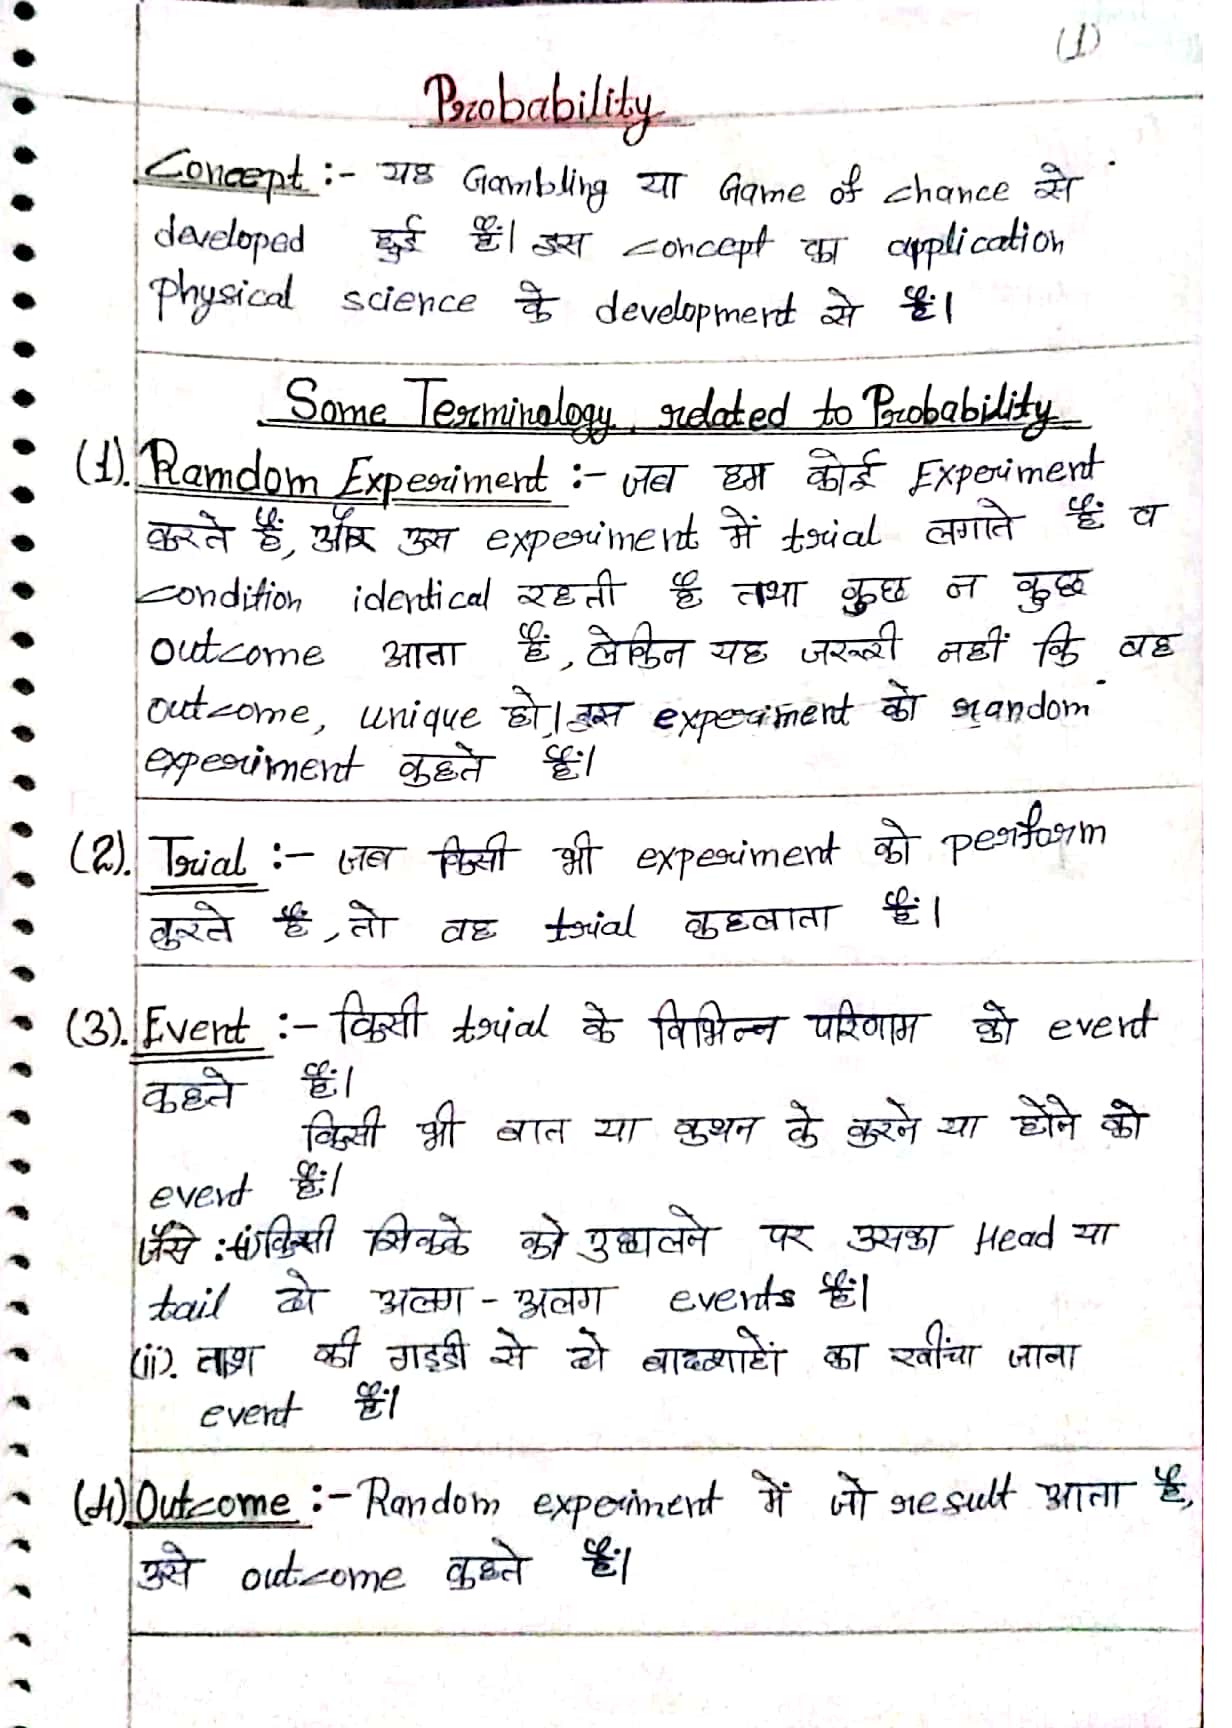 (1)
Probability
Concept :- यह Gambling या Game of chance से
developed हुई हैं। इस concept का application
physical science के development से हैं।
Some Terminology related to Probability
(1). Ramdom Experiment :- जब हम कोई Experiment
करते हैं, और उस experiment में trial लगाते हैं व
condition identical रहती है तथा कुछ न कुछ
outcome आता हैं, लेकिन यह जरूरी नहीं कि वह
outcome, unique हो। इस experiment को random
experiment कहते हैं।
(2). Trial :- जब किसी भी experiment को perform
करते हैं, तो वह trial कहलाता हैं।
(3). Event :- किसी trial के विभिन्न परिणाम को event
कहते हैं।
किसी भी बात या कथन के करने या होने को
event हैं।
जैसे :-(i) किसी सिक्के को उछालने पर उसका Head या
tail दो अलग - अलग events हैं।
(ii). ताश की गड्डी से दो बादशाहों का खींचा जाना
event हैं।
(4) Outcome :- Random experiment में जो result आता है,
उसे outcome कहते हैं।